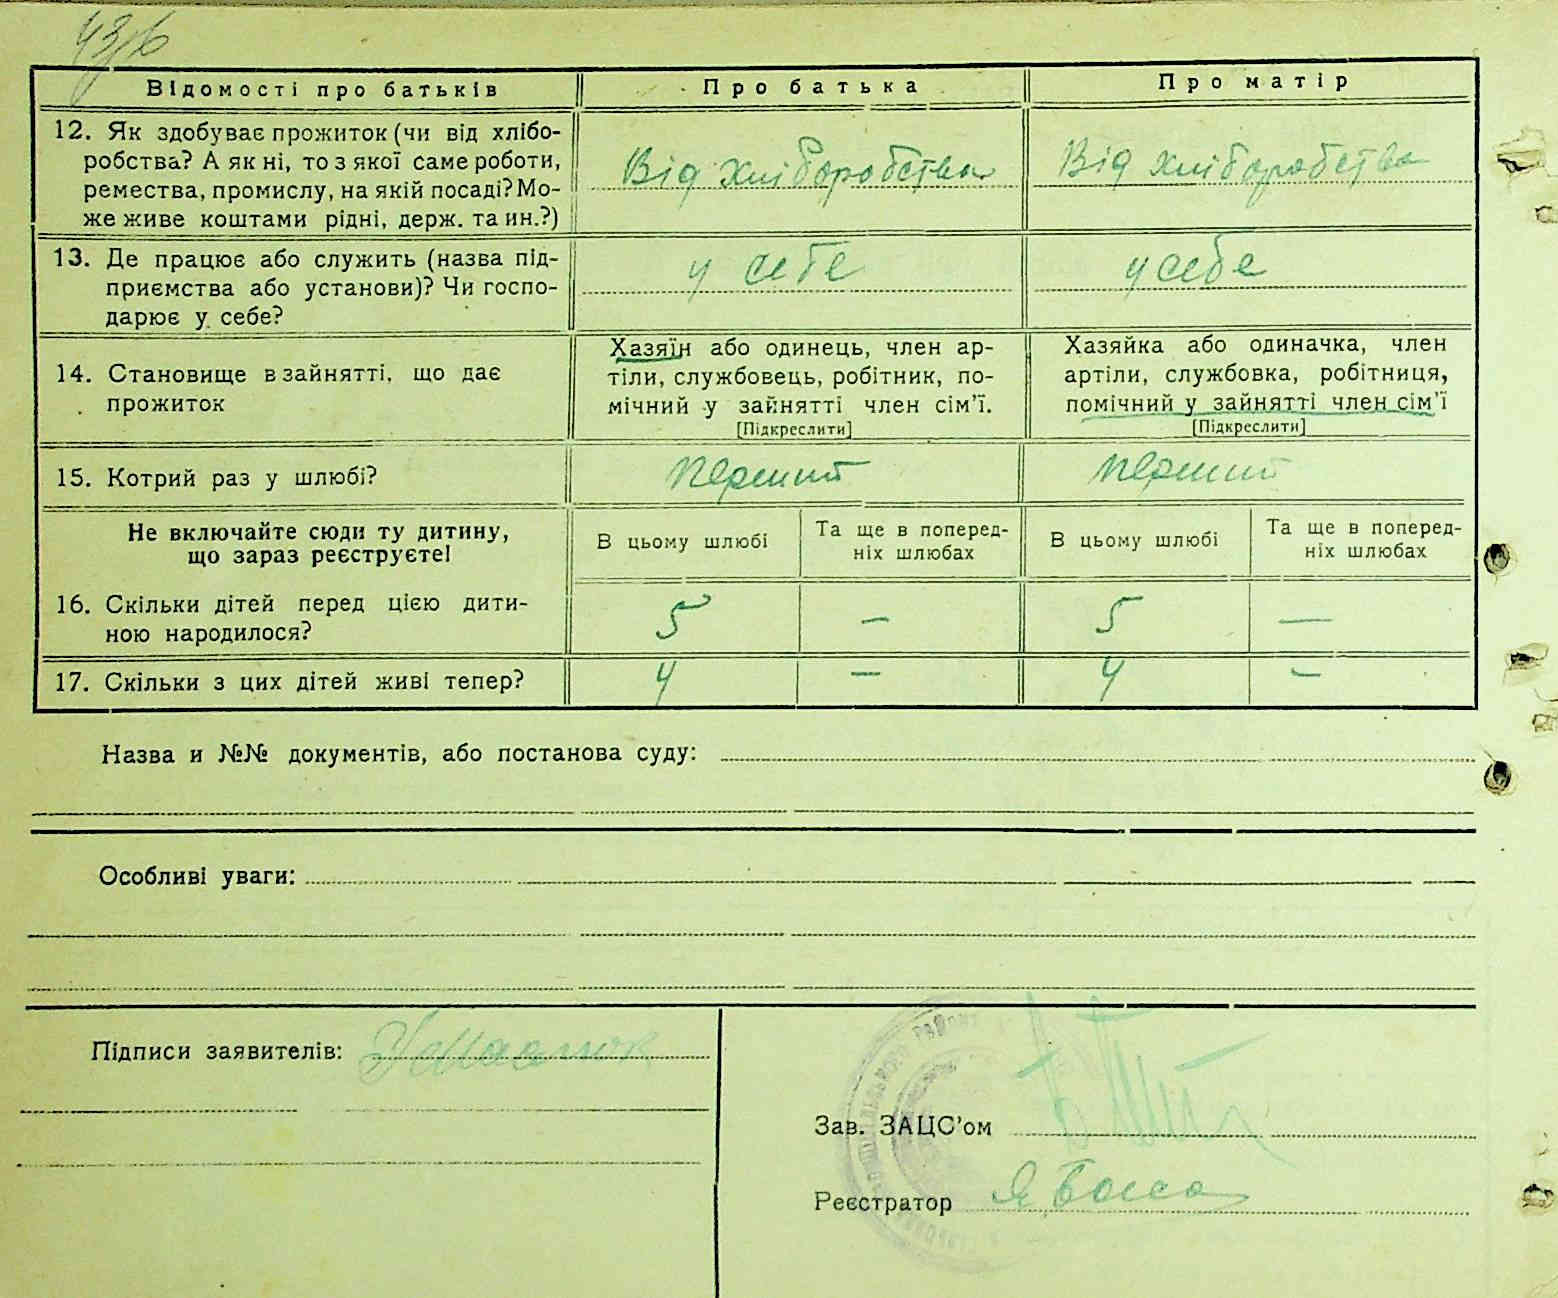 Відомості про батьків
Про батька
Про матір
12. Як здобуває прожиток (чи від хлібо-
робства? А як ні, то з якої саме роботи,
ремества, промислу, на якій посаді? Мо-
же живе коштами рідні, держ. та ин.?)
Від хліборобства
Від хліборобства
13. Де працює або служить (назва під-
приємства або установи)? Чи госпо-
дарює у себе?
у себе
у себе
14. Становище в зайнятті, що дає
прожиток
Хазяїн або одинець, член ар-
тіли, службовець, робітник, по-
мічний у зайнятті член сім'ї.
[Підкреслити]
Хазяйка або одиначка, член
артіли, службовка, робітниця,
помічний у зайнятті член сім'ї
[Підкреслити]
15. Котрий раз у шлюбі?
перший
перший
Не включайте сюди ту дитину,
що зараз реєструєте!
В цьому шлюбі
Та ще в поперед-
ніх шлюбах
В цьому шлюбі
Та ще в поперед-
ніх шлюбах
16. Скільки дітей перед цією дити-
ною народилося?
5
—
5
—
17. Скільки з цих дітей живі тепер?
4
—
4
—
Назва и №№ документів, або постанова суду:
Особливі уваги:
Підписи заявителів:
Зав. ЗАЦС'ом
Реєстратор